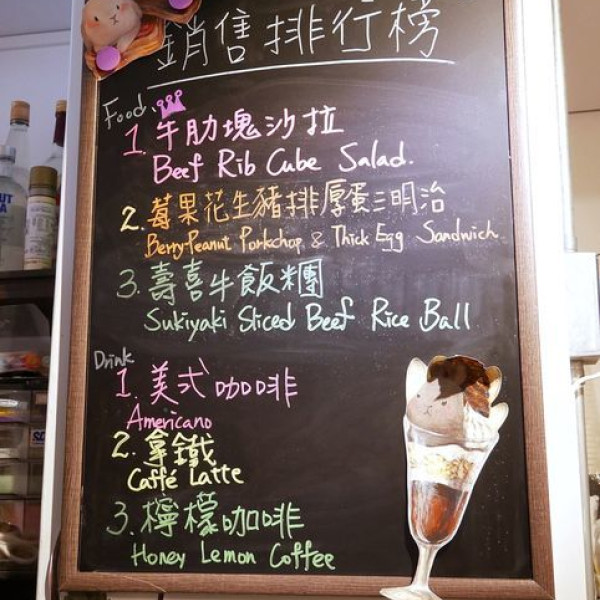 銷售排行榜
Food
1. 牛肋塊沙拉
Beef Rib Cube Salad.
2. 莓果花生豬排厚蛋三明治
Berry-Peanut Porkchop & Thick Egg Sandwich
3. 壽喜牛飯糰
Sukiyaki Sliced Beef Rice Ball
Drink
1. 美式咖啡
Americano
2. 拿鐵
Caffé Latte
3. 檸檬咖啡
Honey Lemon Coffee